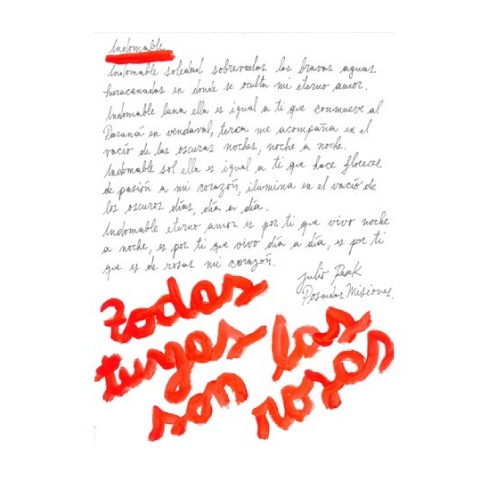 Indomable
Indomable soledad sobrevuelas las bravas aguas
huracanadas en donde se oculta mi eterno amor.
Indomable luna ella es igual a ti que conmueve al
Paraná en vendaval, terca me acompaña en el
vacío de las oscuras noches, noche a noche.
Indomable sol ella es igual a ti que hace florecer
de pasión a mi corazón, ilumina en el vacío de
los oscuros días, día a día.
Indomable eterno amor es por ti que vivo noche
a noche, es por ti que vivo día a día, es por ti
que es de rosas mi corazón.
Julio
Posadas Misiones.
todas
tuyas las
son rosas